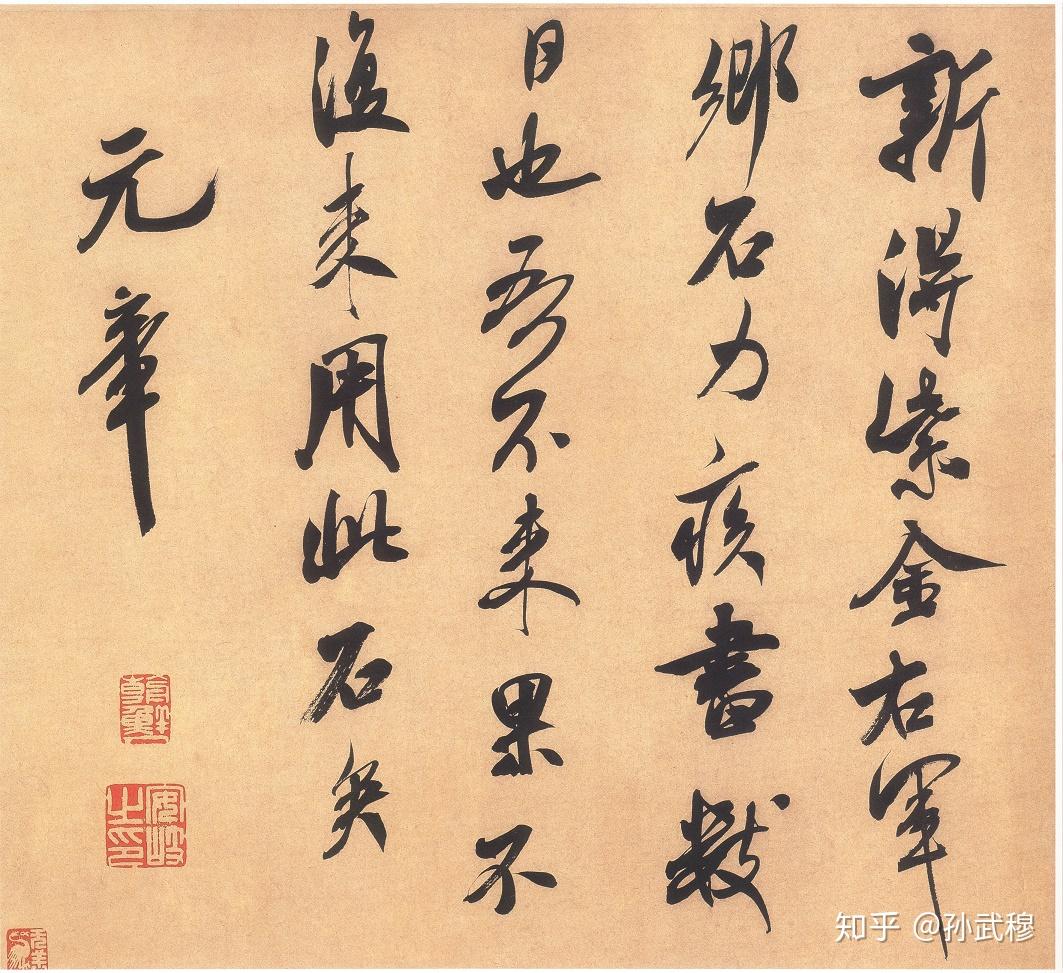 新得紫金右軍
鄉石力疾書數
日也吾不來果不
復來用此石矣
元章
知乎 @孙武穆